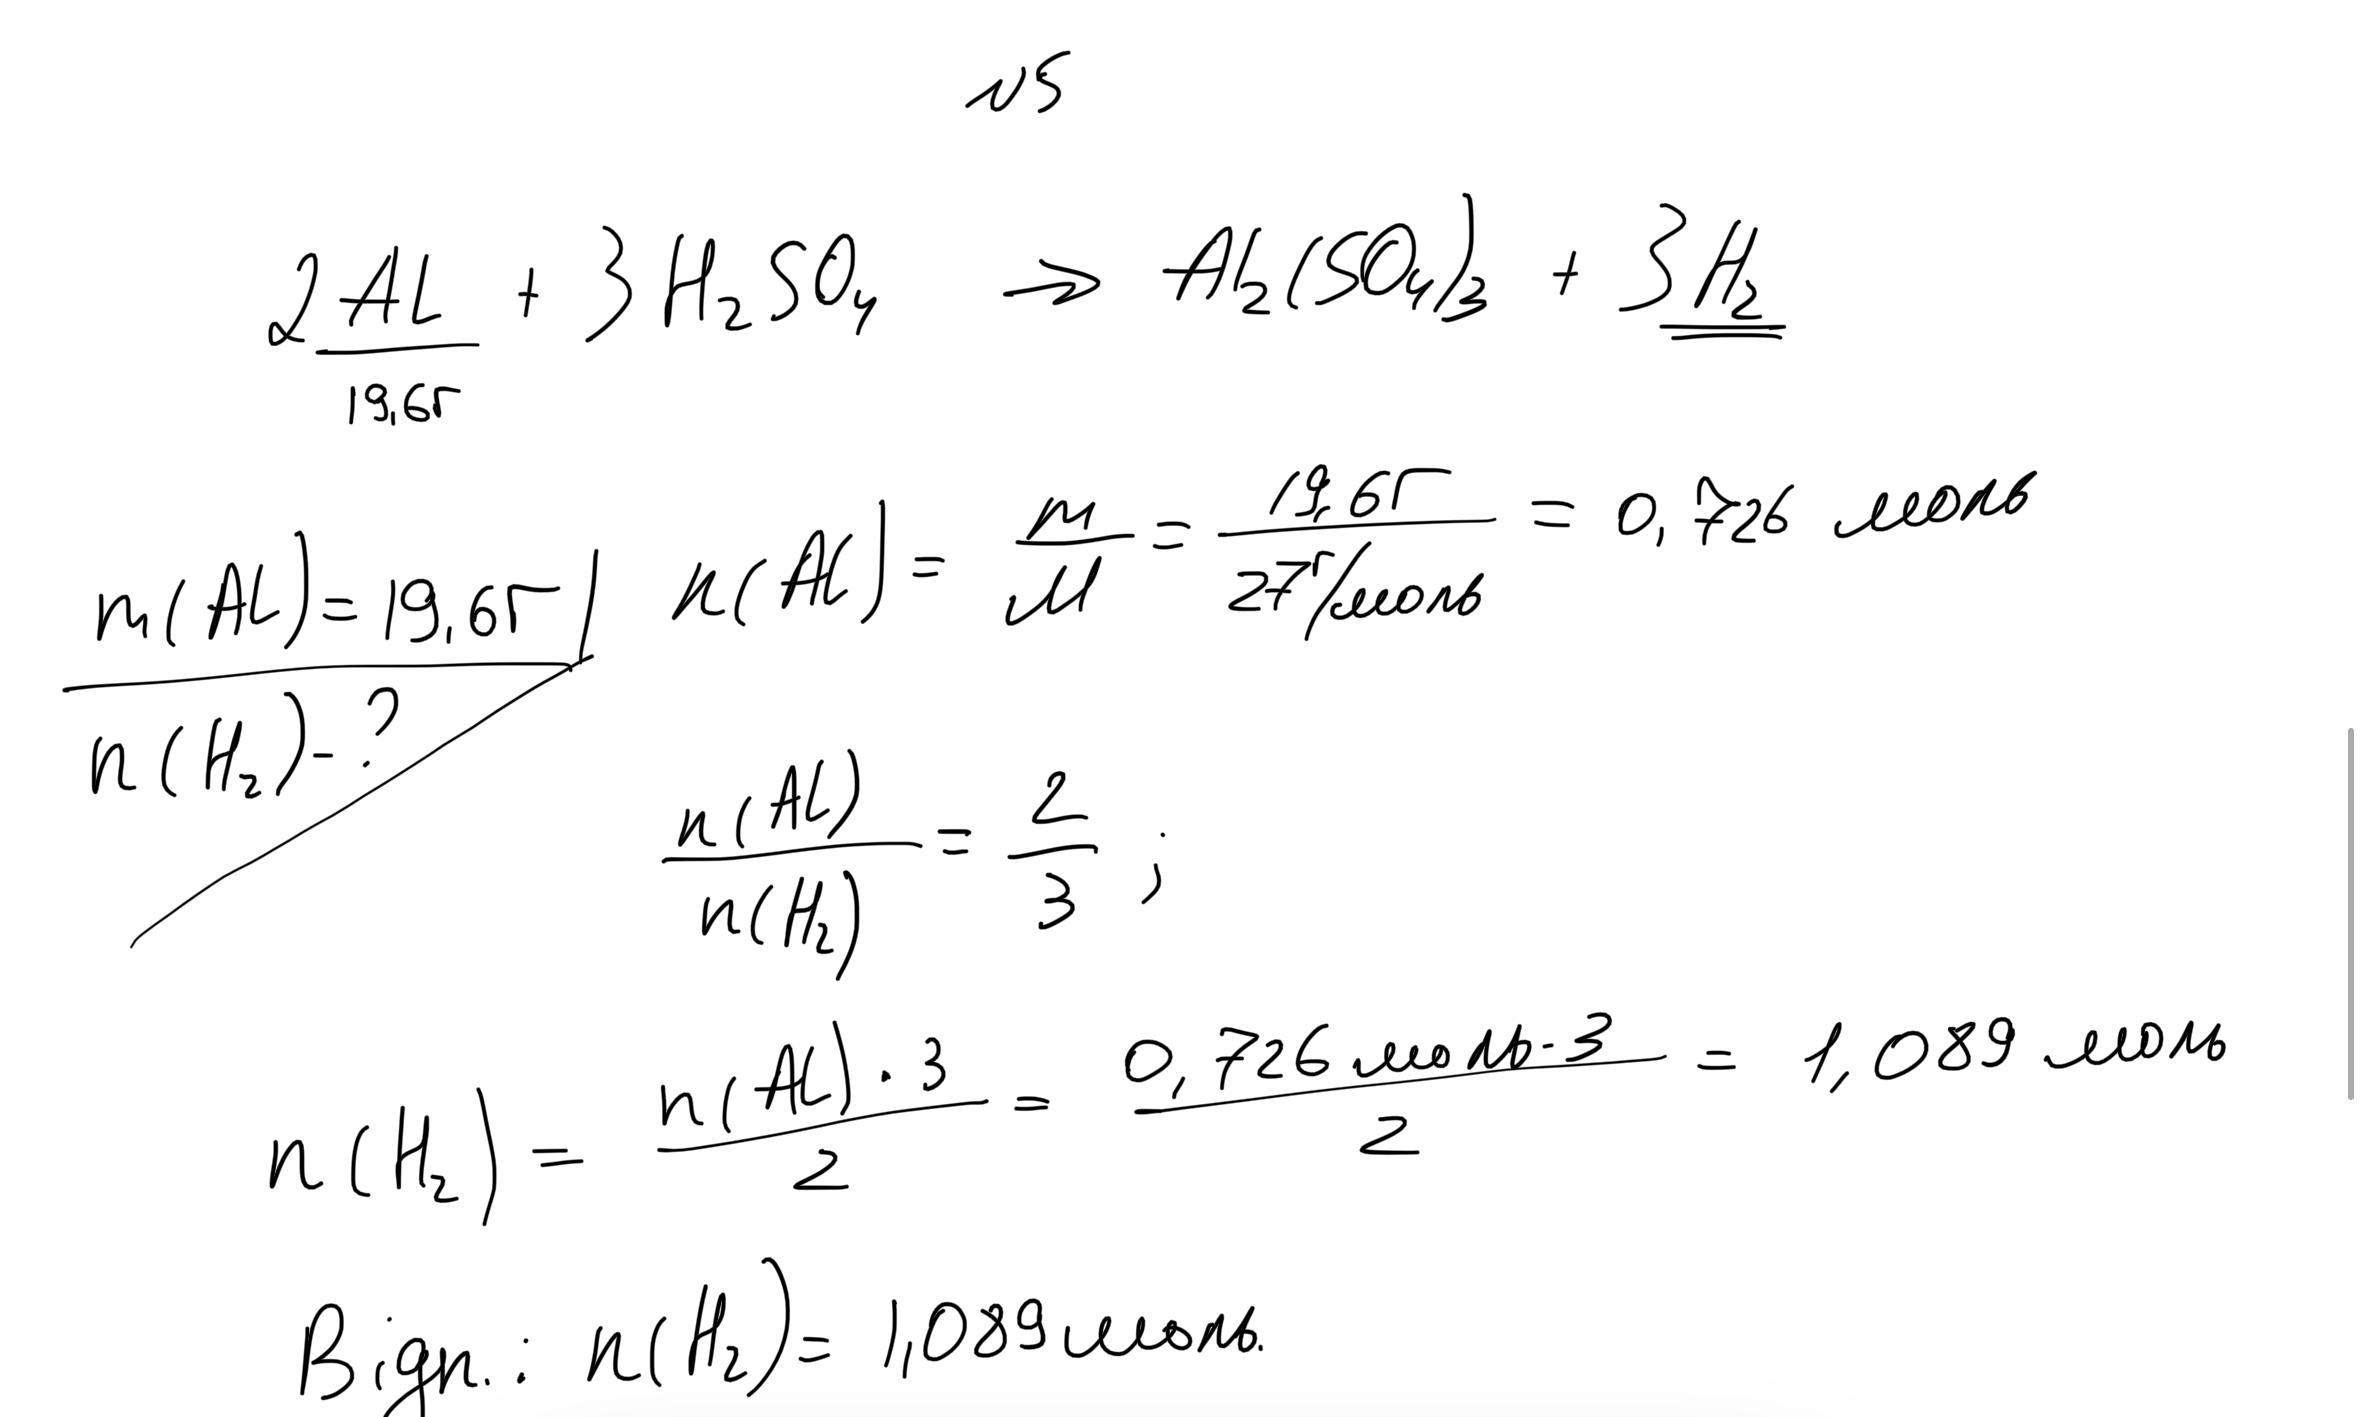 N5
2Al + 3H₂SO₄ → Al₂(SO₄)₃ + 3H₂
19,6г
m(Al) = 19,6г
n(H₂) - ?
n(Al) = m/M = 19,6г / 27г/моль = 0,726 моль
n(Al)/n(H₂) = 2/3 ;
n(H₂) = n(Al)·3 / 2 = 0,726 моль·3 / 2 = 1,089 моль
Відп.: n(H₂) = 1,089 моль.